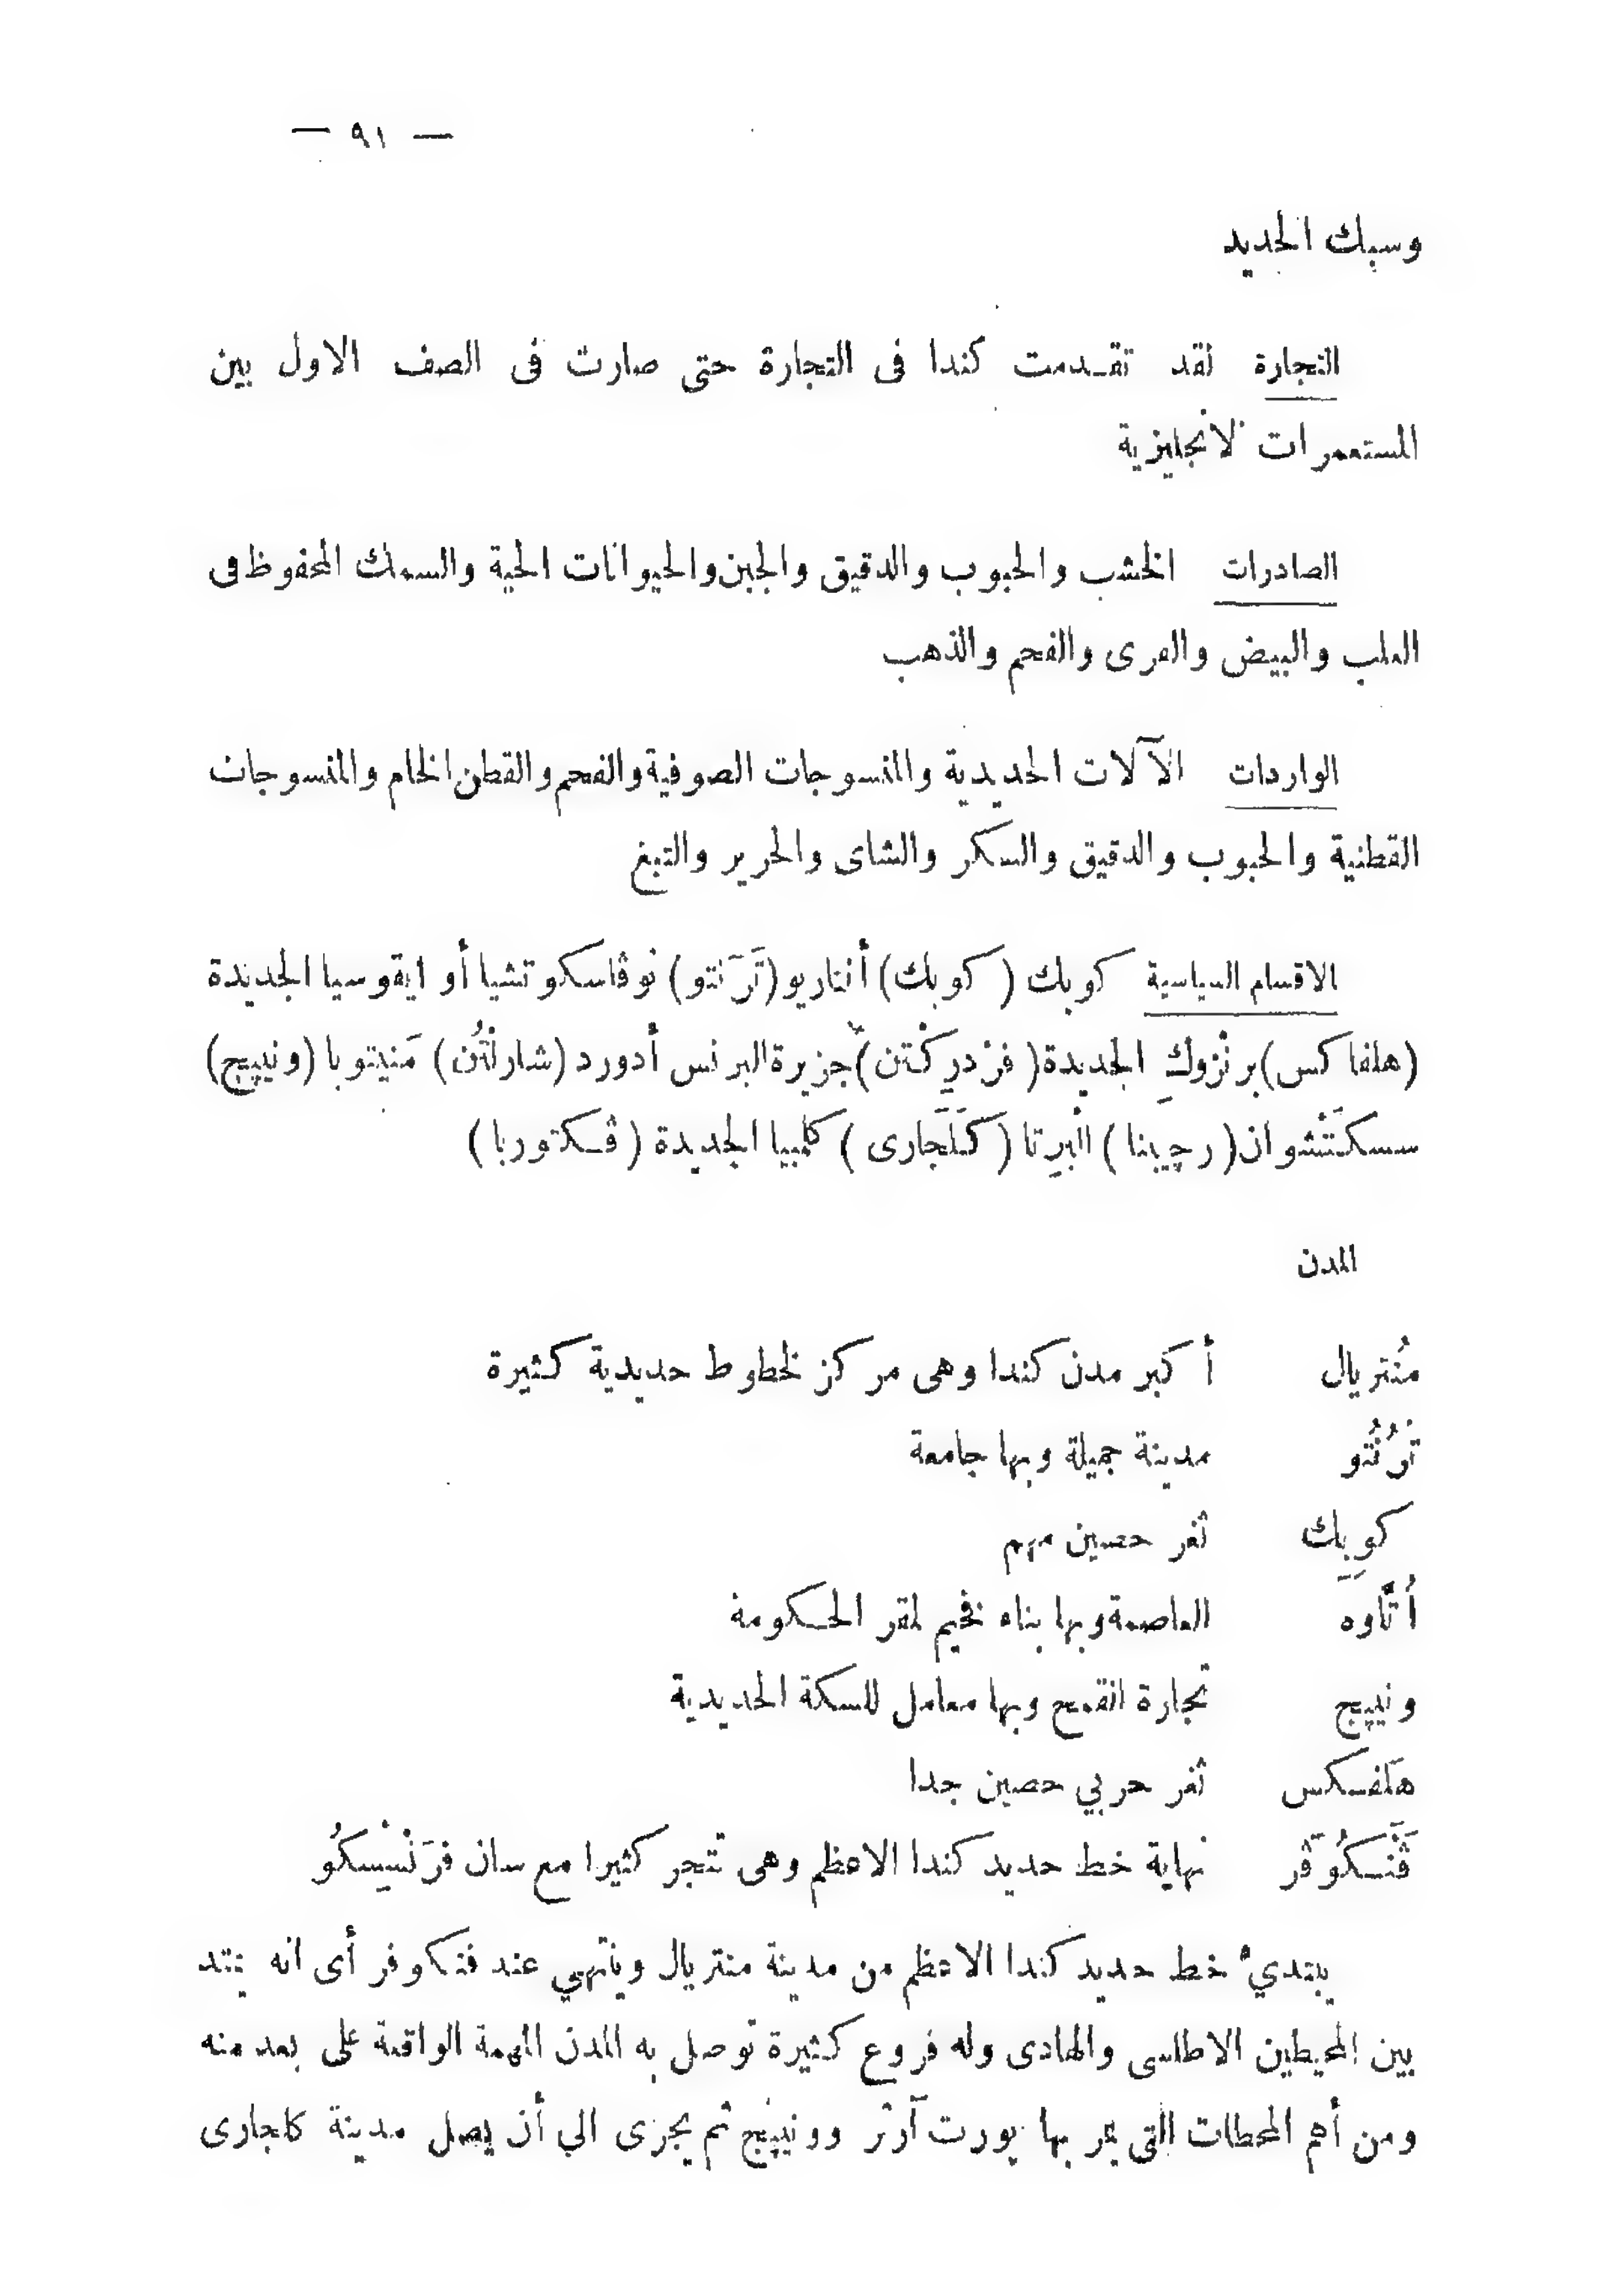 — ٩١ —
وسبك الحديد
التجارة لقد تقدمت كندا فى التجارة حتى صارت فى الصف الاول بين
المستعمرات الانجليزية
الصادرات الخشب والحبوب والدقيق والجبن والحيوانات الحية والسمك المحفوظ فى
العلب والبيض والفرى والفحم والذهب
الواردات الآلات الحديدية والمنسوجات الصوفية والفحم والقطن الخام والمنسوجات
القطنية والحبوب والدقيق والسكر والشاى والحرير والتبغ
الاقسام السياسية كوبك (كوبك) أنتاريو (تَرَنتو) نوڤاسكوتشيا أو ايقوسيا الجديدة
(هلفاكس) برنْزوكِ الجديدة (فرْدرِكْتن) جزيرة البرنس أدورد (شارلْتُن) مَنيتوبا (ونيپج)
سسكَتْشوان (رچينا) البرِتا (كَلَجَارى) كلمبيا الجديدة (ڤكتوريا)
المدن
مُنتريال أكبر مدن كندا وهى مركز لخطوط حديدية كثيرة
تَرُنْتُو مدينة جميلة وبها جامعة
كوِبِك ثغر حصين مهم
أُتَّاوَه العاصمة وبها بناء فخيم لمقر الحكومة
ونيپج تجارة القمح وبها معامل للسكة الحديدية
هَلفكس ثغر حربي حصين جدا
ڤَنْكُوڤَر نهاية خط حديد كندا الاعظم وهى تتجر كثيرا مع سان فرَنْسِيسكُو
يبتديء خط حديد كندا الاعظم من مدينة منتريال وينتهي عند فنكوفر أى انه يمتد
بين المحيطين الاطلسى والهادى وله فروع كثيرة توصل به المدن المهمة الواقعة على بعد منه
ومن أهم المحطات التى يمر بها پورت آرثر وونيپج ثم يجرى الي أن يصل مدينة كلجارى